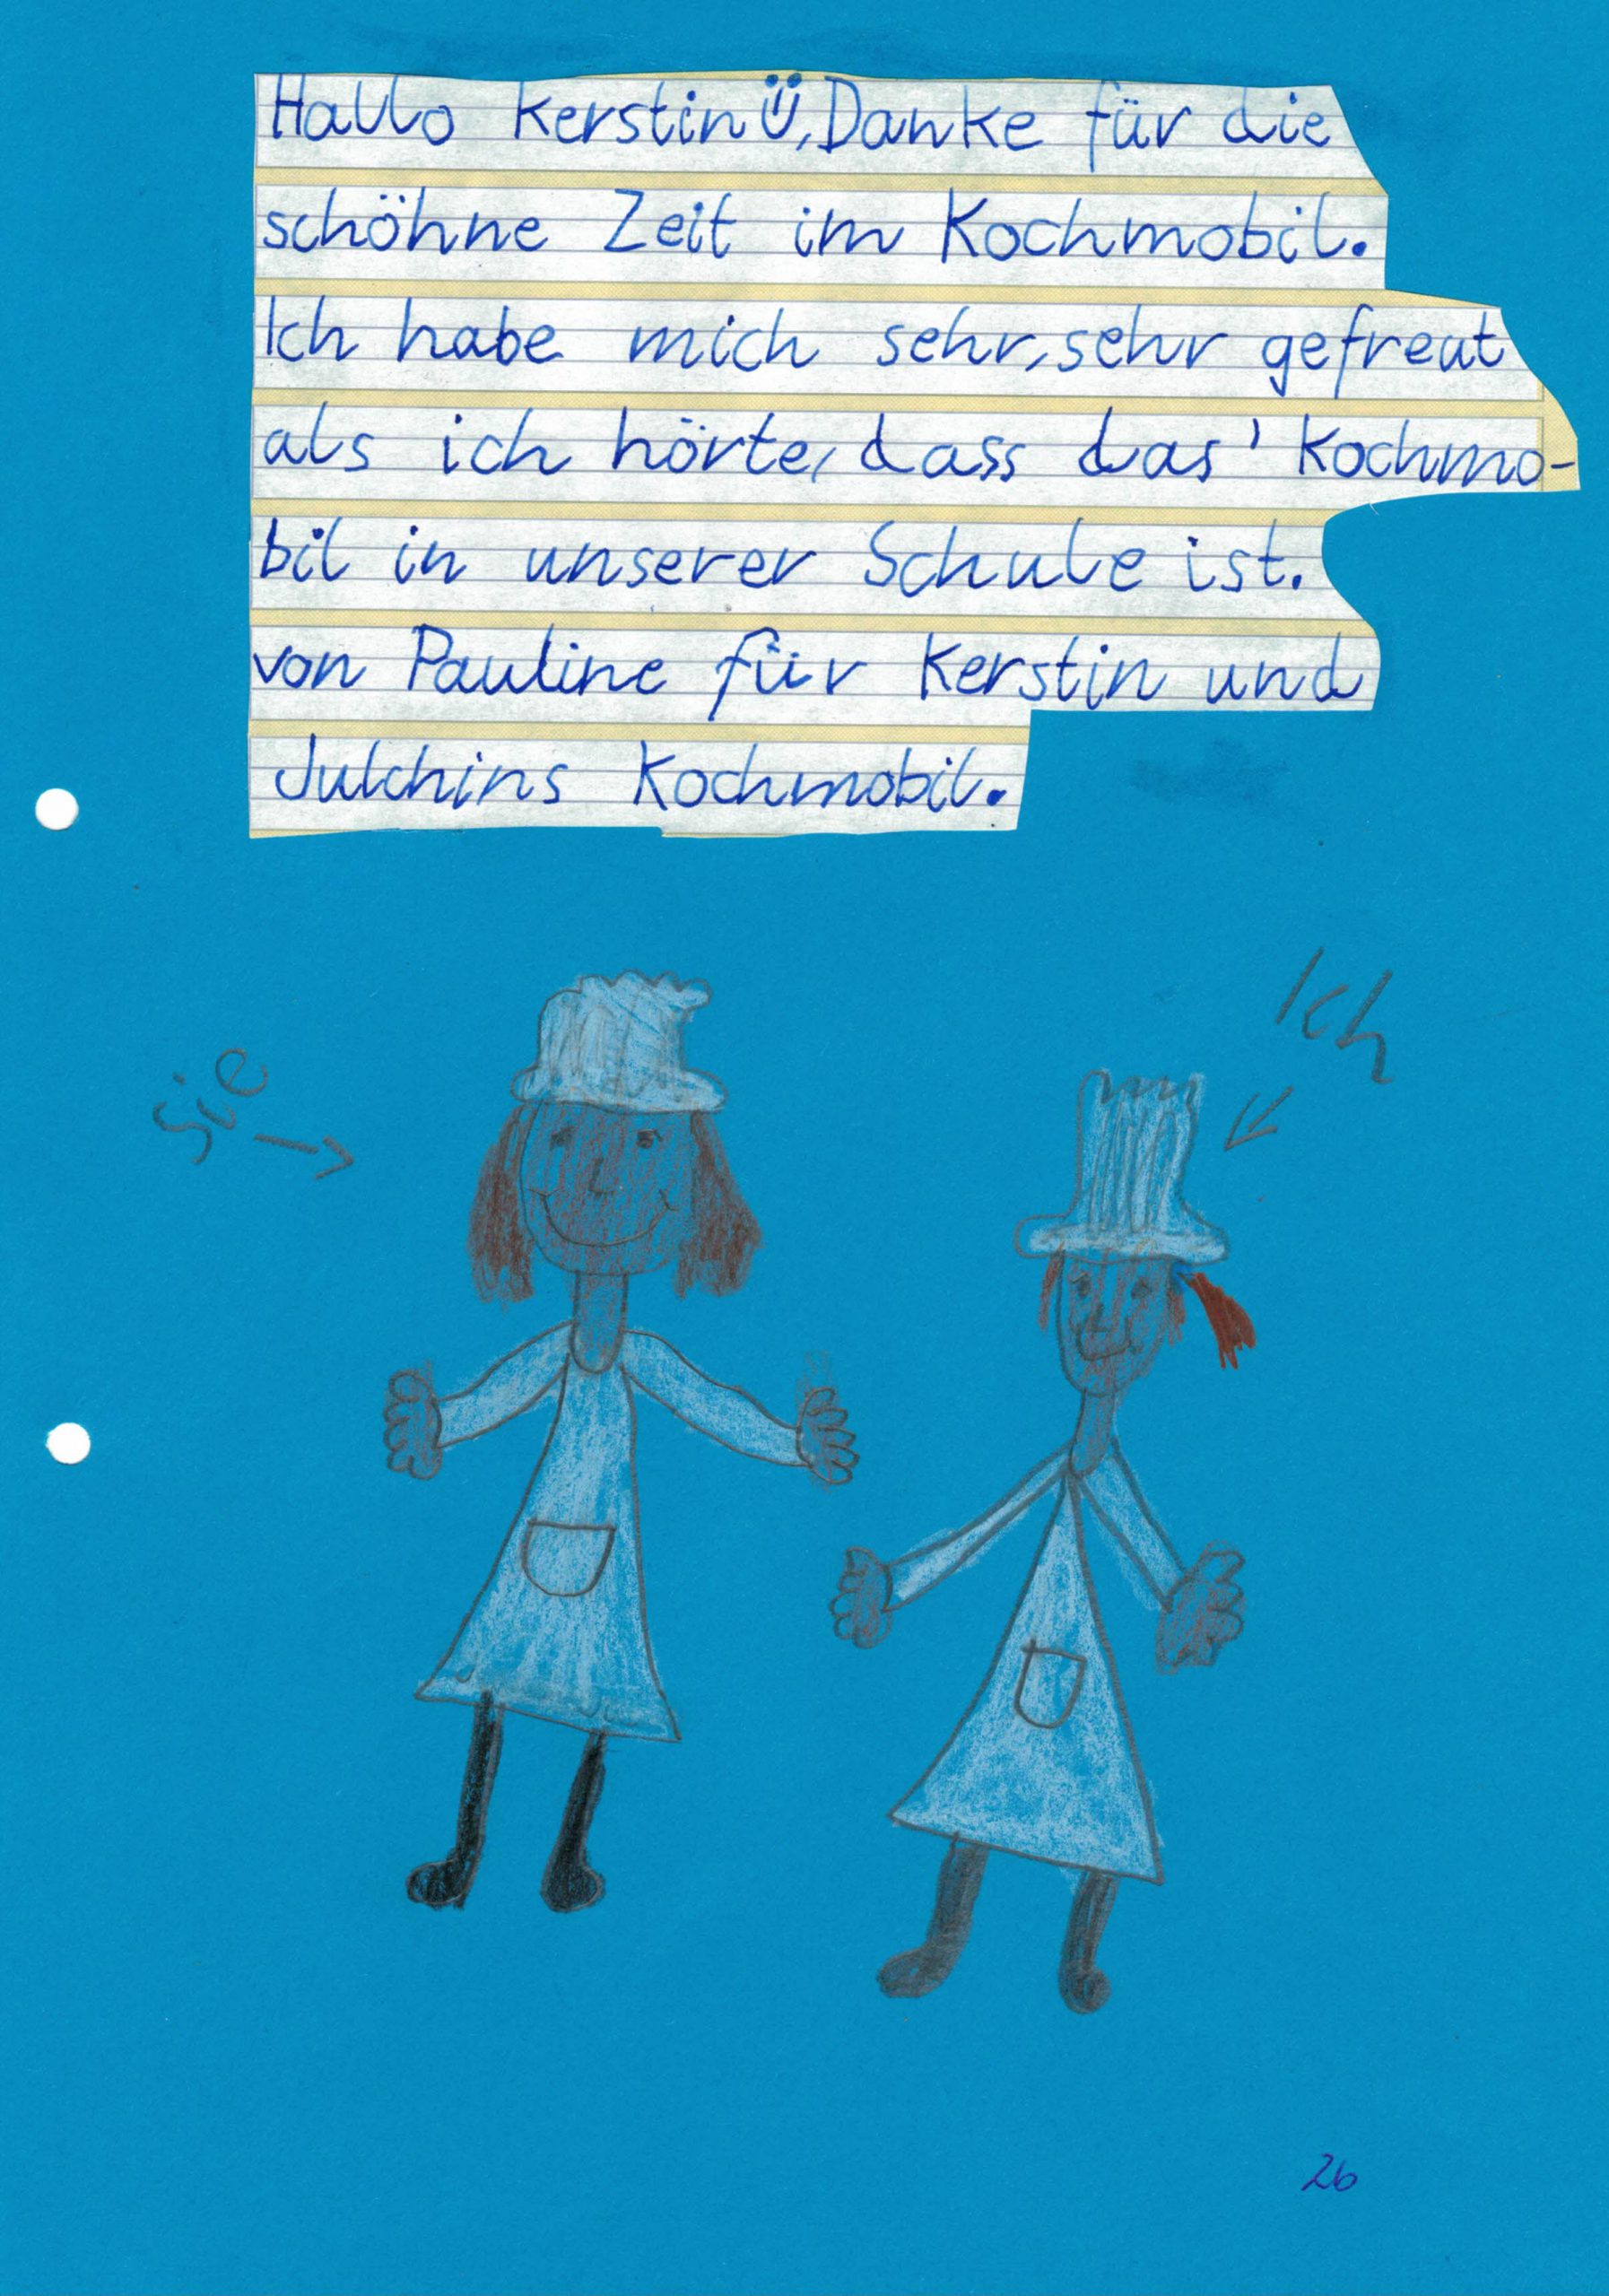 Hallo Kerstin Ü, Danke für die
schöhne Zeit im Kochmobil.
Ich habe mich sehr, sehr gefreut
als ich hörte, dass das' Kochmo-
bil in unserer Schule ist.
von Pauline für Kerstin und
Julchins Kochmobil.
Ich
Sie
26